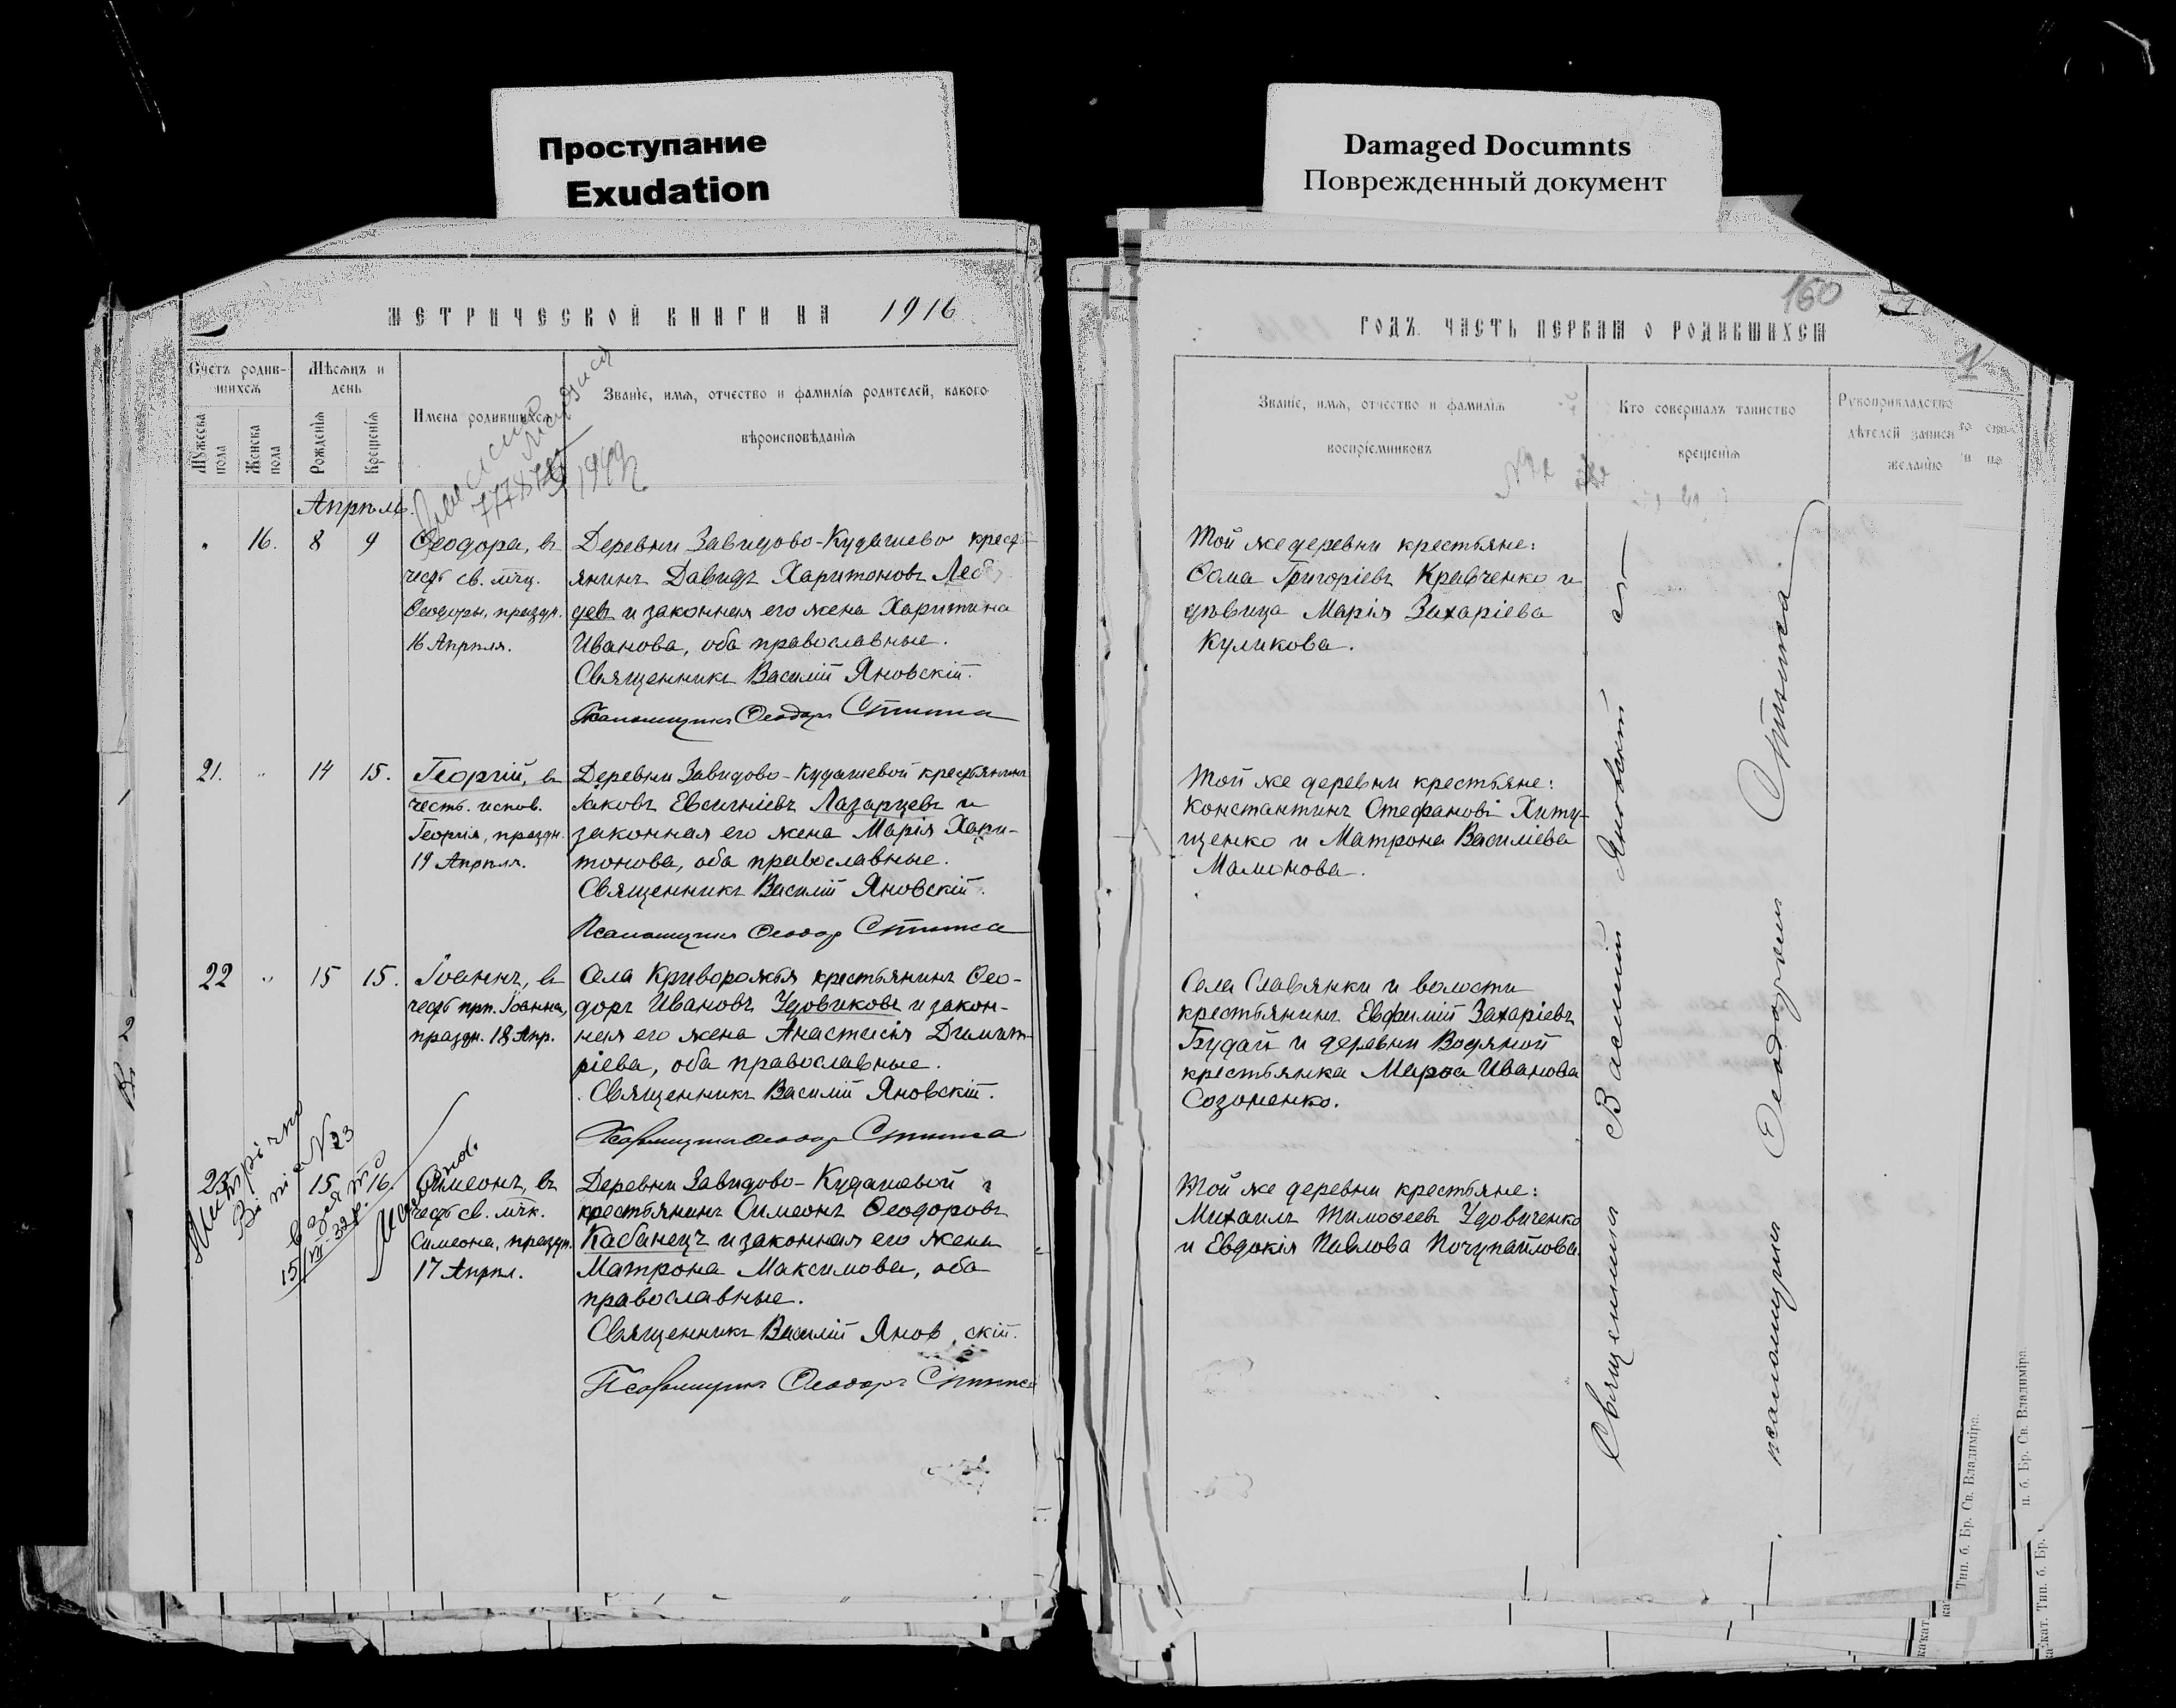 Проступание
Exudation
Damaged Documnts
Поврежденный документ
МЕТРИЧЕСКОЙ КНИГИ НА 1916
Счетъ родив-
шихся
Мѣсяцъ и
день
Мужеска
пола
Женска
пола
Рожденія
Крещенія
Имена родившихся
Званіе, имя, отчество и фамилія родителей, какого
вѣроисповѣданія
1943
Апрѣль.
" 16. 8 9 Ѳеодора, въ Деревни Завидово-Кудашево крест
честь св. мчц. янинъ Давидъ Харитоновъ
Ѳеодоры, праздн. и законная его жена Харитина
16 Апрѣля. Иванова, оба православные.
Священникъ Василій Яновскій.
Псаломщикъ Ѳеодоръ
21. " 14 15. Георгій, въ Деревни Завидово-Кудашевой крестьянинъ
честь испов. Іаковъ Евсигніевъ Лазарцевъ и
Георгія, праздн. законная его жена Марія Хари-
19 Апрѣля. тонова, оба православные.
Священникъ Василій Яновскій.
Псаломщикъ Ѳеодоръ
22 " 15 15. Іоаннъ, въ Села Криворожья крестьянинъ Ѳео-
честь прп. Іоанна, доръ Ивановъ Удовиковъ и закон-
праздн. 18 Апр. ная его жена Анастасія Димит-
ріева, оба православные.
Священникъ Василій Яновскій.
Псаломщикъ Ѳеодоръ
23 15 16. Симеонъ, въ Деревни Завидово-Кудашевой
честь св. мчк. крестьянинъ Симеонъ Ѳеодоровъ
Симеона, праздн. Кабанецъ и законная его жена
17 Апрѣл. Матрона Максимова, оба
православные.
Священникъ Василій Яновскій.
Псаломщикъ Ѳеодоръ
№23
160
ГОДЪ ЧАСТЬ ПЕРВАЯ О РОДИВШИХСЯ
Званіе, имя, отчество и фамилія
воспріемниковъ
Кто совершалъ таинство
крещенія
Рукоприкладство
дѣтелей записи
желанію
Той же деревни крестьяне:
Ѳома Григоріевъ Кравченко и
дѣвица Марія Захаріева
Куликова.
Той же деревни крестьяне:
Константинъ Стефановъ
и Матрона Василіева
Мамонова.
Села Славянки и волости
крестьянинъ Евфимій Захаріевъ
Будай и деревни Водяной
крестьянка Марѳа Иванова
Созоненко.
Той же деревни крестьяне:
Михаилъ Тимоѳеевъ Удовиченко
и Евдокія Павлова Почупайлова.
Священникъ Василій Яновскій съ
псаломщикомъ Ѳеодоромъ
Тип. б. Бр. Св. Владиміра.
п. б. Бр. Св. Владиміра